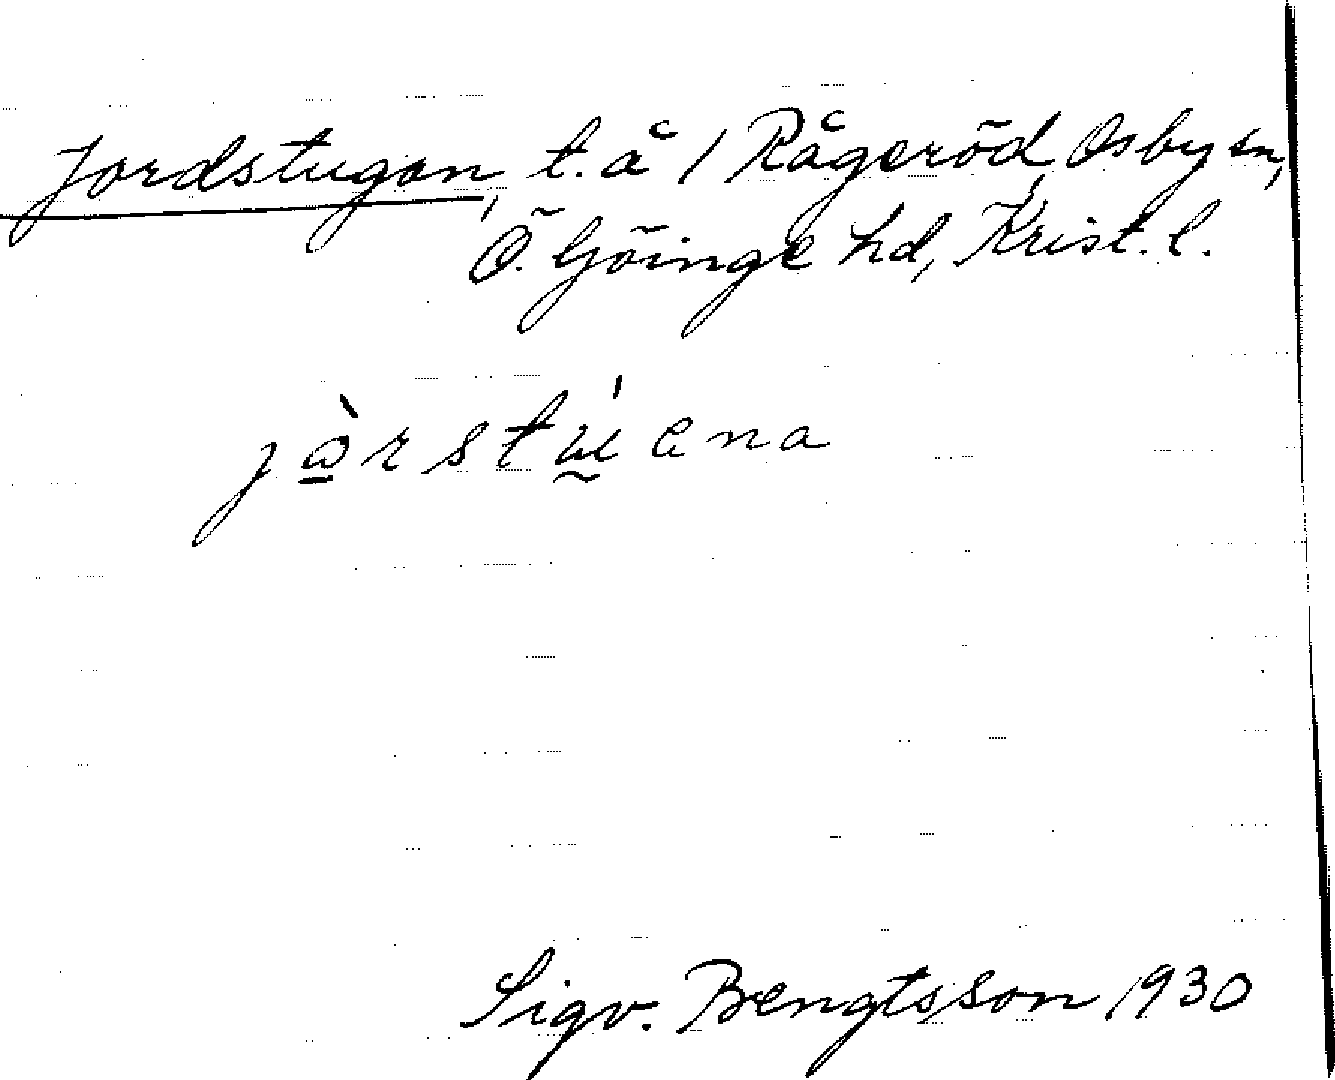 Jordstugan, t. å 1 Rågeröd, Osby sn,
Ö. Göinge hd, Krist. l.
jàrstúena
Sigv. Bengtsson 1930